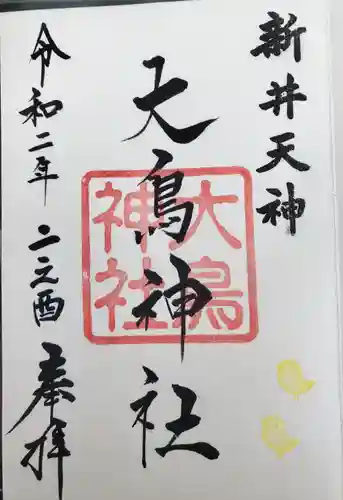 新井天神
大鳥神社
大鳥神社
令和二年 二之酉 奉拝